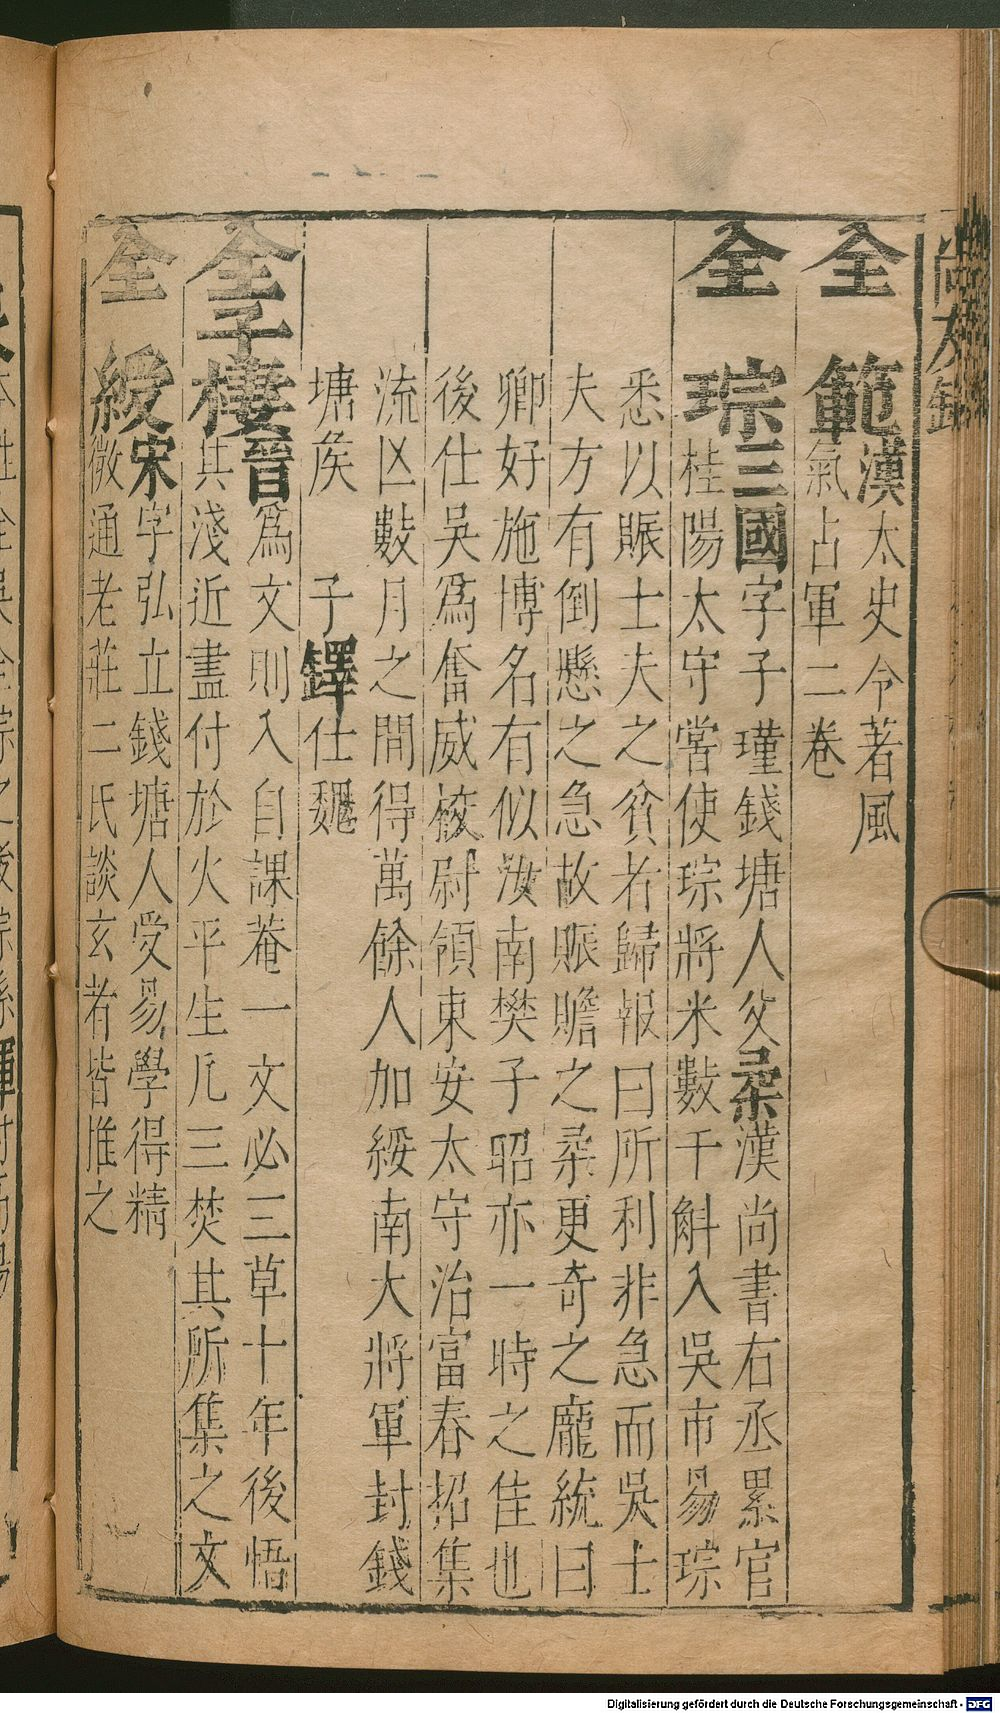 尚友錄
全範漢太史令著風
氣占軍二卷
全琮三國字子瑾錢塘人父柔漢尚書右丞累官
桂陽太守嘗使琮將米數千斛入吳市易琮
悉以賑士夫之貧者歸報曰所利非急而吳士
夫方有倒懸之急故賑贍之柔更奇之龐統曰
卿好施博名有似汝南樊子昭亦一時之佳也
後仕吳為奮威校尉領東安太守治富春招集
流凶數月之間得萬餘人加綏南大將軍封錢
塘矦 子鐸仕魏
全子棲晉為文則入自課菴一文必三草十年後悟
其淺近盡付於火平生凢三焚其所集之文
全綬宋字弘立錢塘人受易學得精
微通老莊二氏談玄者皆推之
Digitalisierung gefördert durch die Deutsche Forschungsgemeinschaft - DFG